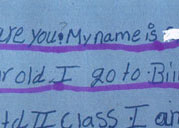 are you? My name is
r old. I go to Bin
td II Class I am